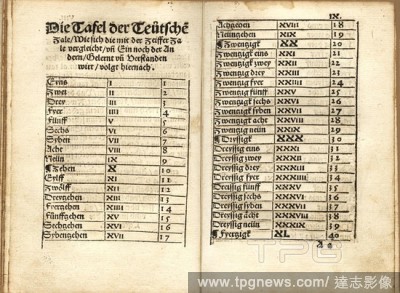 Die Tafel der Teütschē
Zale/Wie sich die mit der Zyffer Za
le vergleicht/vñ Ein noch der An
dern/Gelernt vñ Verstanden
wirt/volgt hiernach.
Eyns I 1
Zwei II 2
Drey III 3
Fyer IIII 4
Fünff V 5
Sechs VI 6
Syben VII 7
Acht VIII 8
Neün IX 9
¶Zehen X 10
Eylff XI 11
Zwölff XII 12
Dreyzehen XIII 13
Fyerzehen XIIII 14
Fünffzehen XV 15
Sechtzehen XVI 16
Sybenzehen XVII 17
IX.
Achtzehen XVIII 18
Neünzehen XIX 19
¶Zwentzigk XX 20
Zwentzig eins XXI 21
Zwentzig zwey XXII 22
Zwentzig drey XXIII 23
Zwentzig fyer XXIIII 24
Zwentzigk fünff XXV 25
Zwentzigk sechs XXVI 26
Zwentzigk syben XXVII 27
Zwentzigk acht XXVIII 28
Zwentzig neün XXIX 29
¶Dreyssigk XXX 30
Dreyssig eins XXXI 31
Dreyssig zwey XXXII 32
Dreyssig drey XXXIII 33
Dreyssig fyer XXXIIII 34
Dreyssig fünff XXXV 35
Dreyssig sechs XXXVI 36
Dreyssig syben XXXVII 37
Dreyssig acht XXXVIII 38
Dreyssig neün XXXIX 39
¶Fyertzigk XL 40
TPG
www.tpgnews.com/達志影像